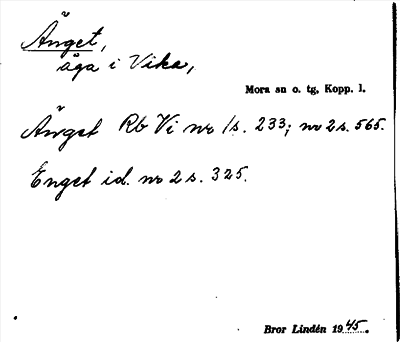 Änget,
äga i Vika,
Mora sn o. tg, Kopp. l.
Änget Rb Vi nr 1 s. 233; nr 2 s. 565.
Enget id. nr 2 s. 325.
Bror Lindén 1945.